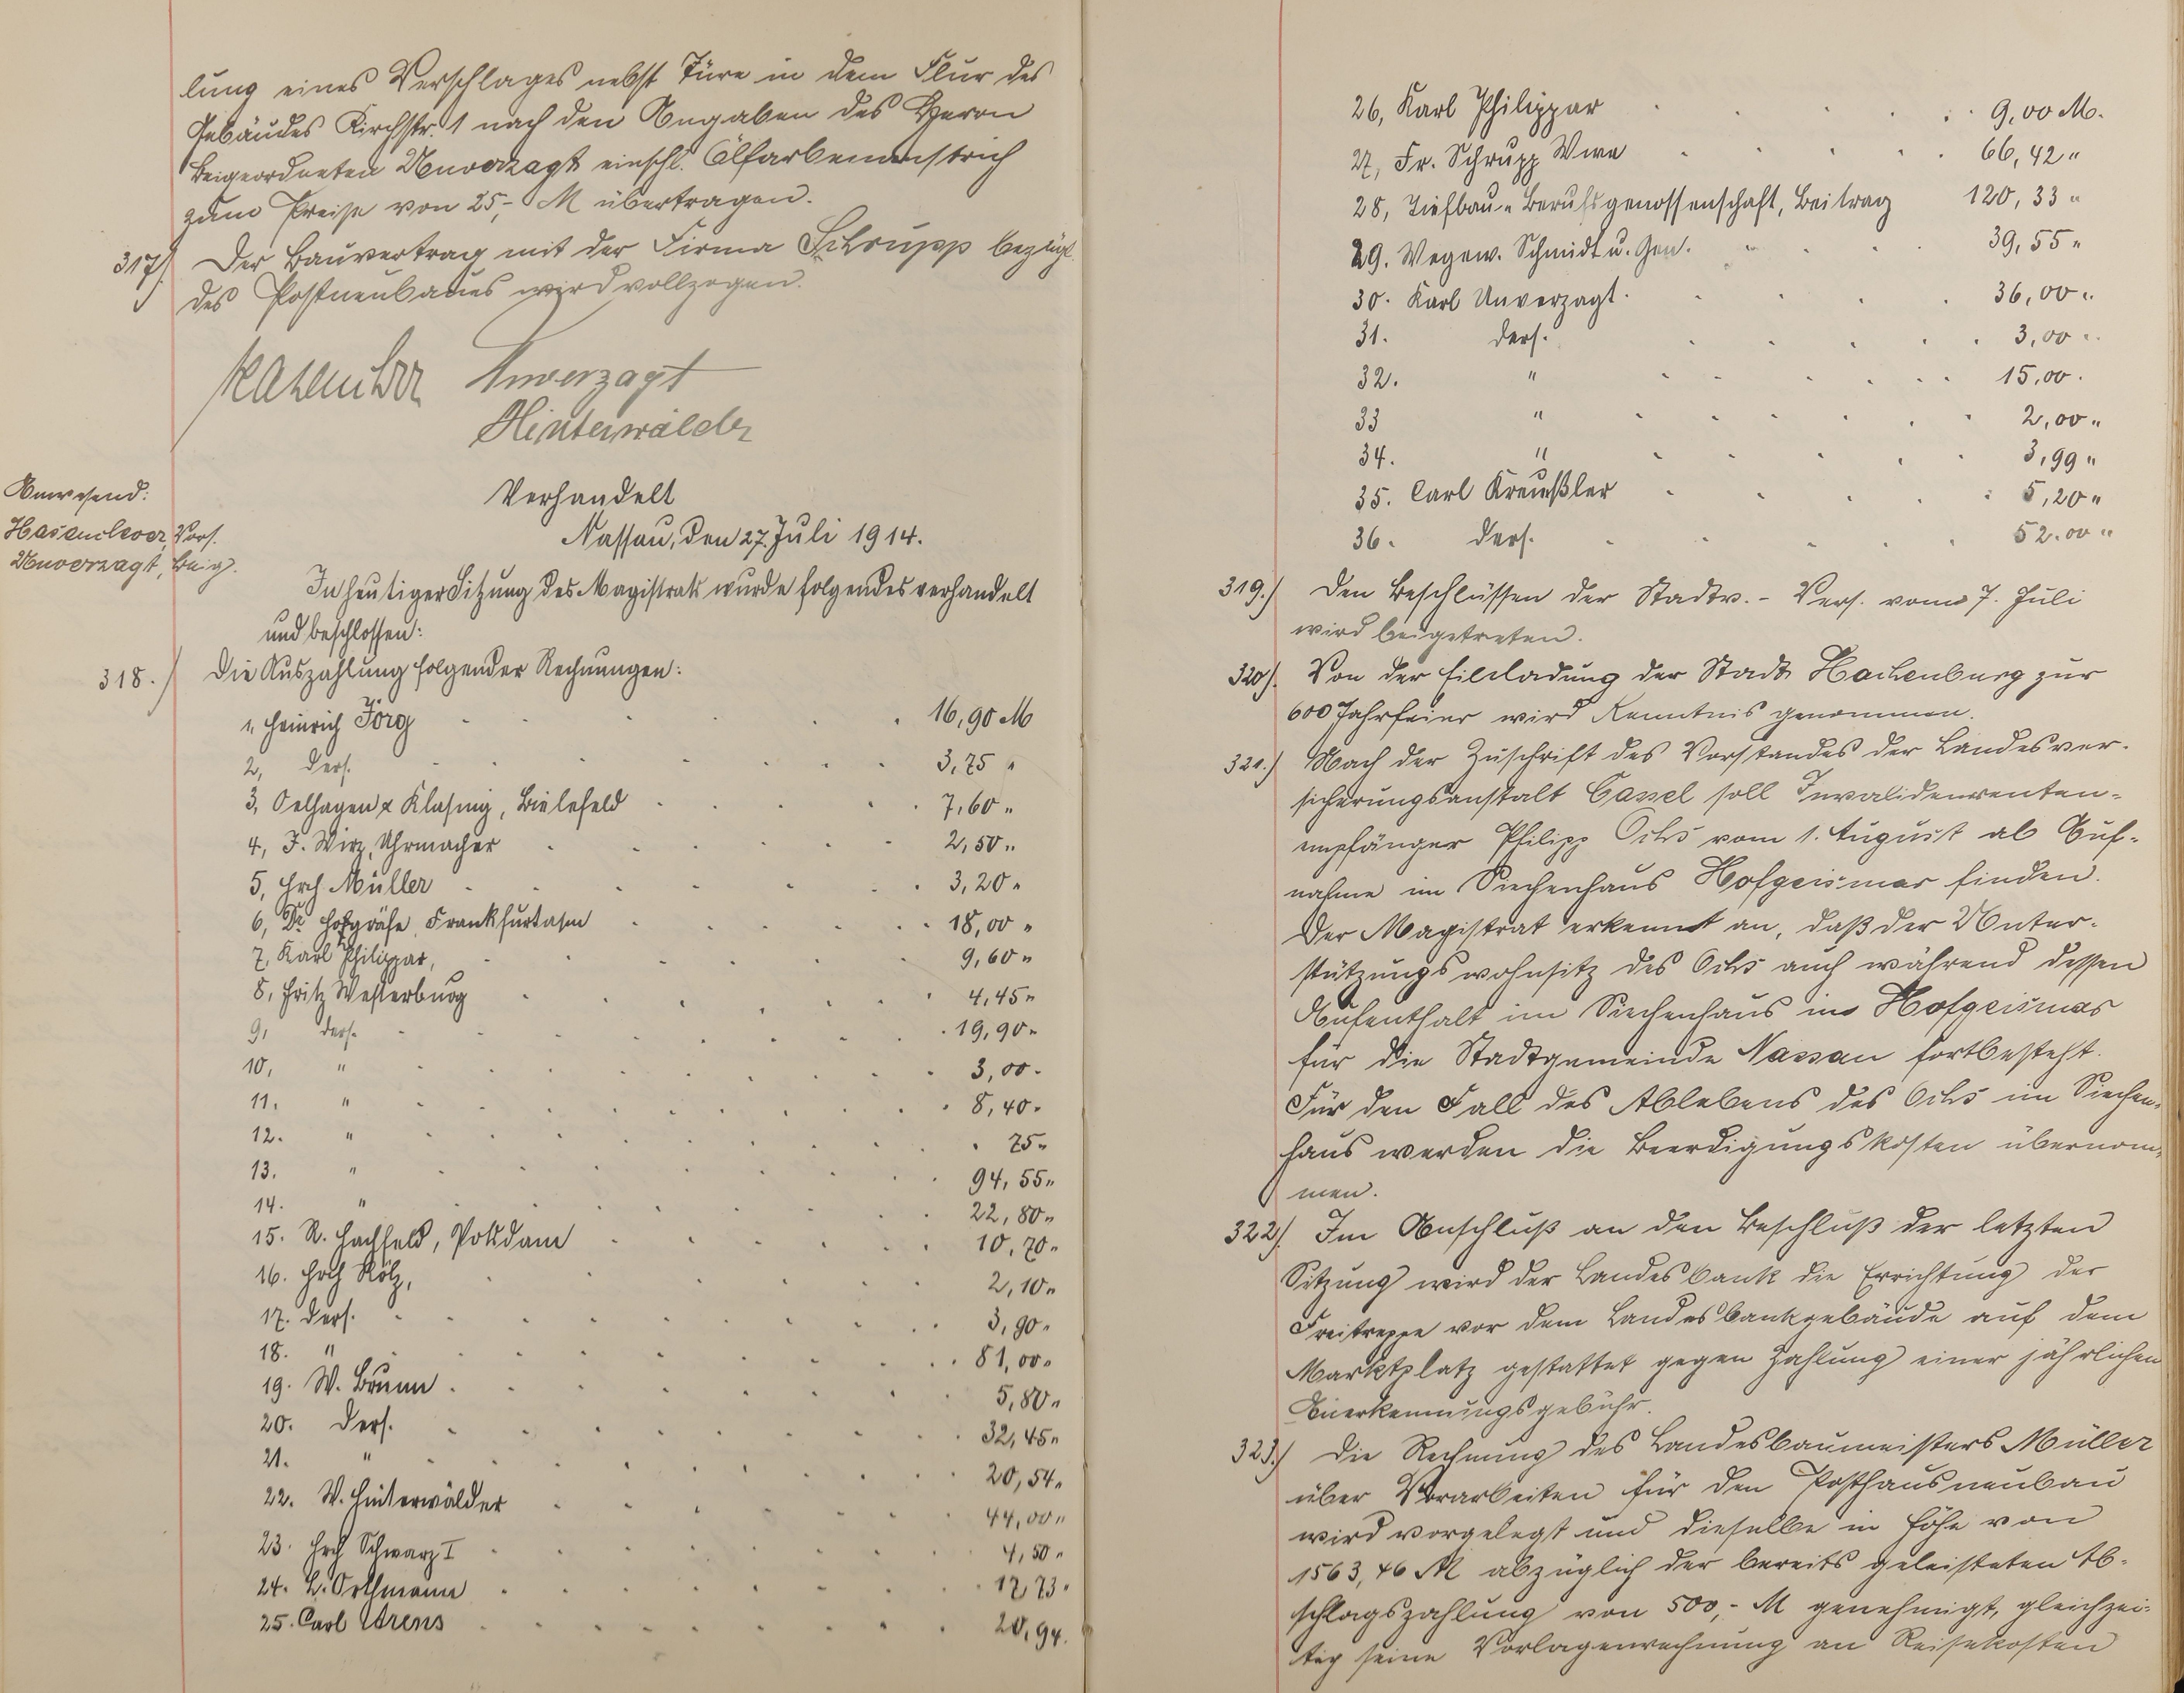 lung eines Verschlages nebst Türe in dem Flur des
Gebäudes Kirchstr. 1 nach den Angaben des Herrn
Beigeordneten Unverzagt einschl. Ölfarbenanstrich
zum Preise von 25,- M übertragen.
317). Der Bauvertrag mit der Firma Schrupp bezügl.
des Postneubaues wird vollzogen.
Hasenclever Unverzagt
Hinterwälder
Verhandelt
Nassau, den 27. Juli 1914.
Anwesend:
Hasenclever, Vors.
Unverzagt, Beig.
In heutiger Sitzung des Magistrats wurde folgendes verhandelt
und beschlossen:
318.) Die Auszahlung folgender Rechnungen:
1, Heinrich Jörg 16,90 M
2, ders. 3,75 "
3, Oelhagen & Klasing, Bielefeld 7,60 "
4, F. Wirz, Uhrmacher 2,50 "
5, Hrch Müller 3,20 "
6, Dr. Hofgräfe, Frankfurt a/M 18,00 "
7, Karl Philippar, 9,60 "
8, Fritz Westerburg 4,45 "
9, ders. 19,90 "
10, " 3,00 "
11. " 8,40 "
12. " 75 "
13. " 94,55 "
14. " 22,80 "
15. R. Hachfeld, Potsdam 10,70 "
16. Hrch Kölz, 2,10 "
17. ders. 3,90 "
18. " 81,00 "
19. W. Brunn 5,80 "
20. ders. 32,45 "
21. " 20,54 "
22. W. Hinterwälder 44,00 "
23. Hrch Schwarz I 4,50 "
24. L. Orthmann 17,73 "
25. Carl Arens 20,94.
26, Karl Philippar 9,00 M.
27, Fr. Schrupp Wwe 66,42 "
28, Tiefbau-Berufsgenossenschaft, Beitrag 120,33 "
29. Wegew. Schmidt u. Gen. 39,55 "
30. Karl Unverzagt 36,00 "
31. ders. 3,00 "
32. " 15,00 "
33 " 2,00 "
34. " 3,99 "
35. Carl Kreußler 5,20 "
36. ders. 52.00 "
319.) Den Beschlüssen der Stadtv.-Vers. vom 7. Juli
wird beigetreten.
320). Von der Einladung der Stadt Hachenburg zur
600 Jahrfeier wird Kenntnis genommen.
321.) Nach der Zuschrift des Vorstandes der Landesver-
sicherungsanstalt Cassel soll Invalidenrenten-
empfänger Philipp Ochs vom 1. August ab Auf-
nahme im Siechenhaus Hofgeismar finden.
Der Magistrat erkennt an, daß der Unter-
stützungswohnsitz des Ochs auch während dessen
Aufenthalt im Siechenhaus in Hofgeismar
für die Stadtgemeinde Nassau fortbesteht.
Für den Fall des Ablebens des Ochs im Siechen-
haus werden die Beerdigungskosten übernom-
men.
322). Im Anschluß an den Beschluß der letzten
Sitzung wird der Landesbank die Errichtung der
Freitreppe vor dem Landesbankgebäude auf dem
Marktplatz gestattet gegen Zahlung einer jährlichen
Anerkennungsgebühr.
323.) Die Rechnung des Landesbaumeisters Müller
über Vorarbeiten für den Posthausneubau
wird vorgelegt und dieselbe in Höhe von
1563,46 M abzüglich der bereits geleisteten Ab-
schlagszahlung von 500,- M genehmigt, gleichzei-
tig seine Vorlagenrechnung an Reisekosten